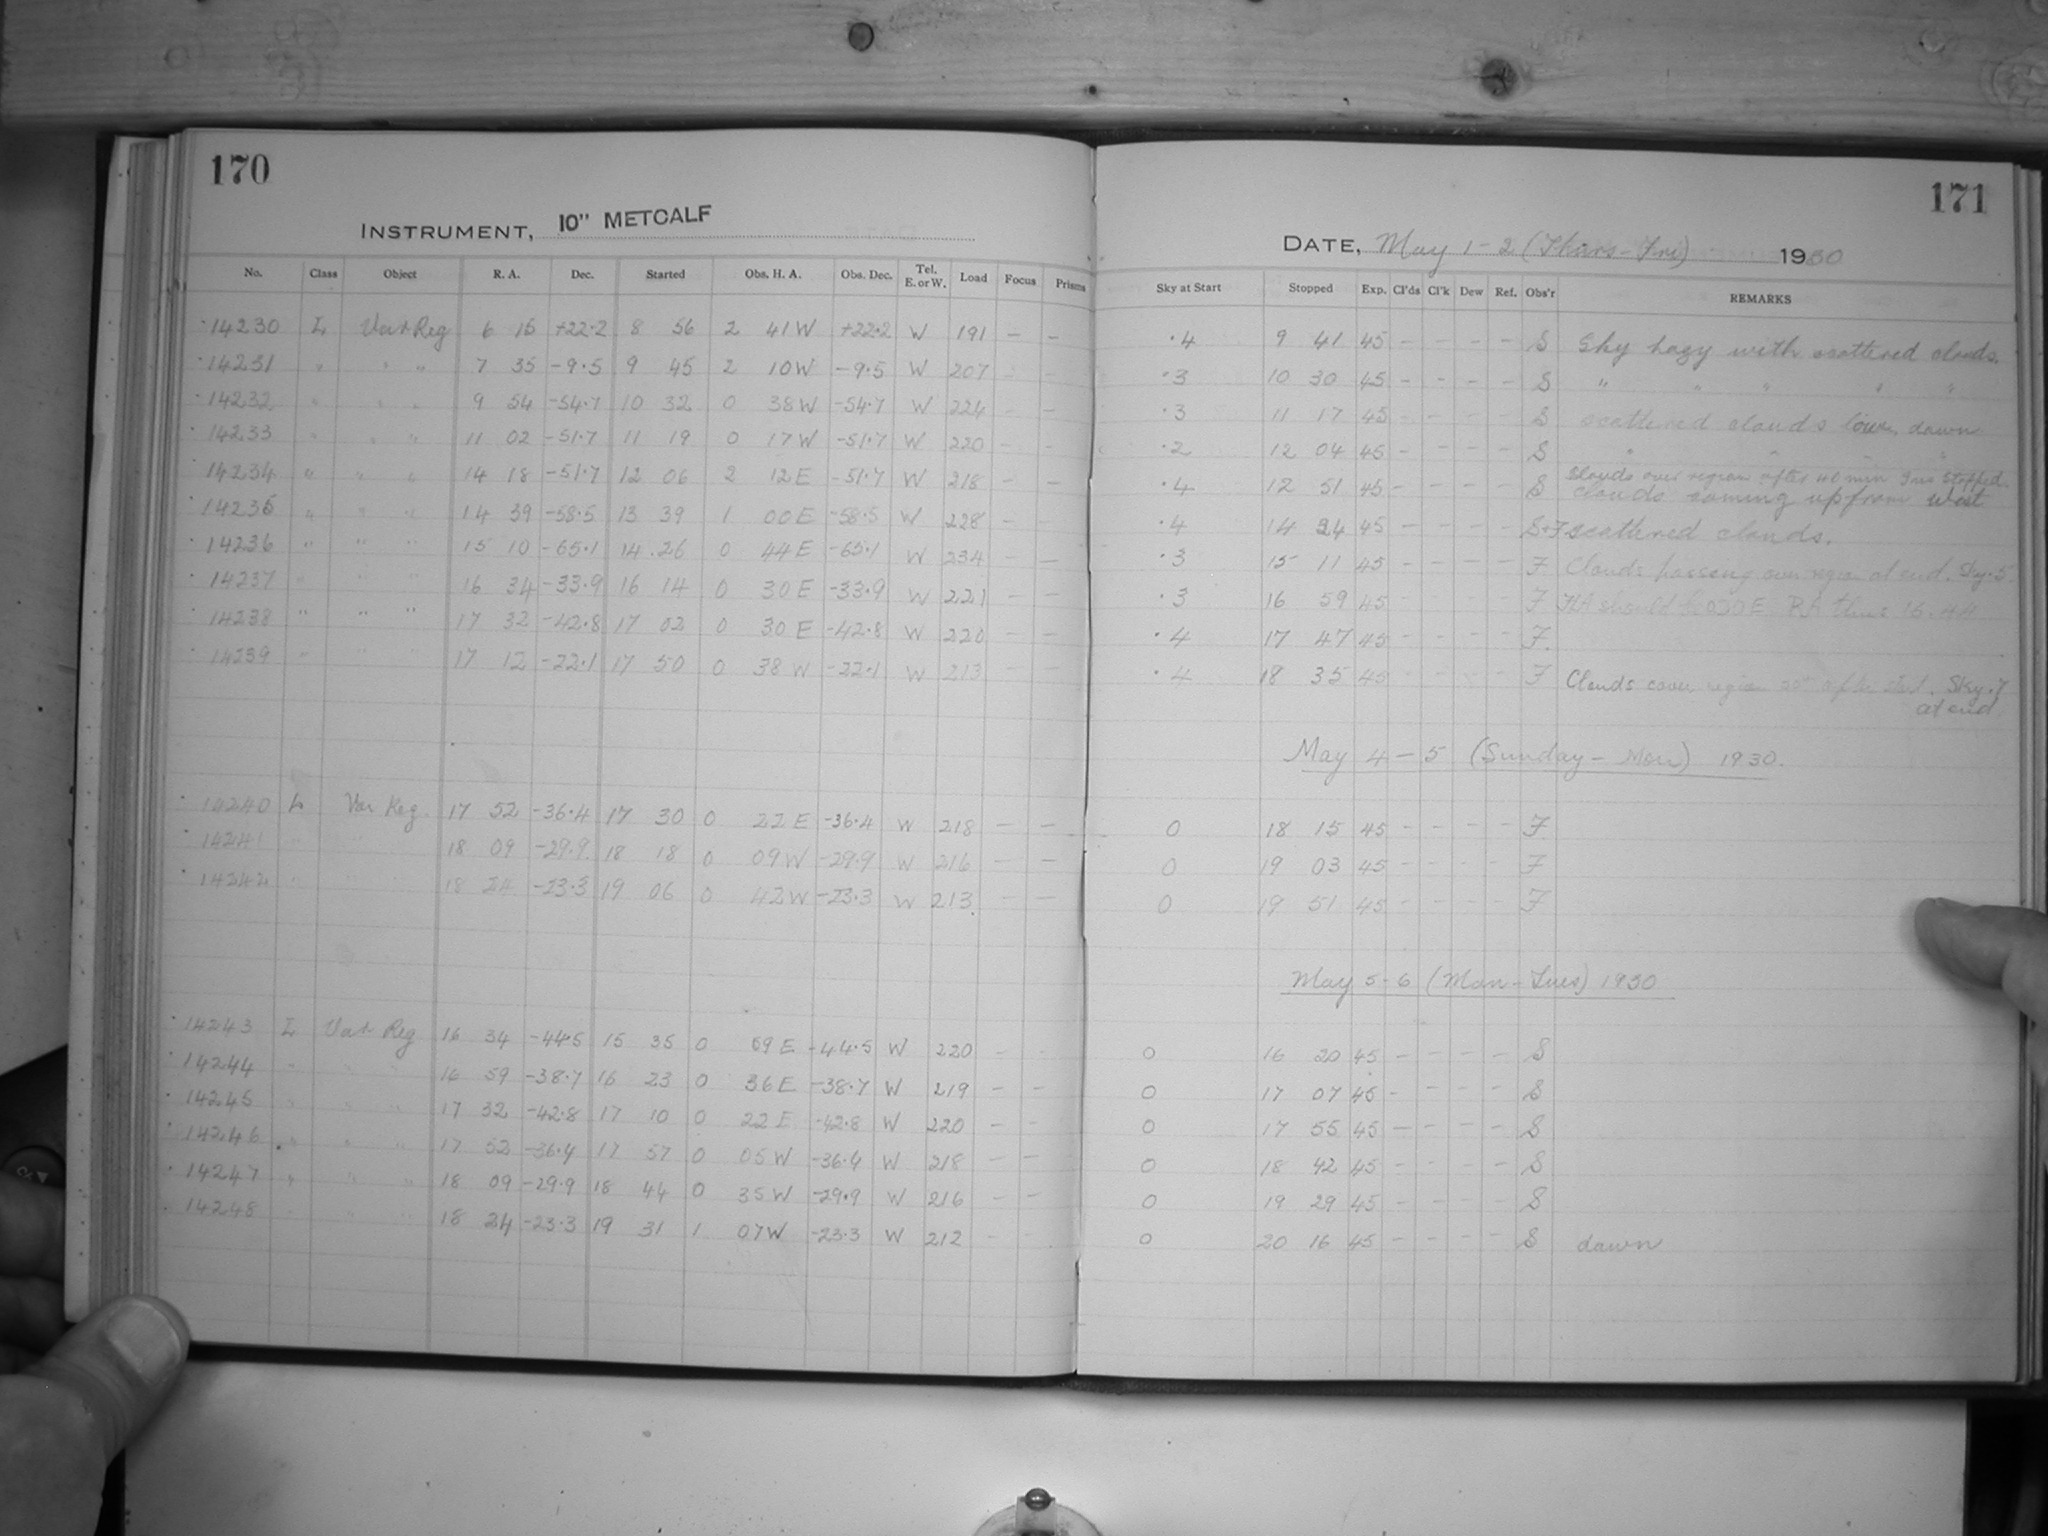 170
171
INSTRUMENT, 10" METCALF
DATE, May 1-2 (Thurs-Fri) 1930
No. Class Object R. A. Dec. Started Obs. H. A. Obs. Dec. Tel. E. or W. Load Focus Prisms Sky at Start Stopped Exp. Cl'ds Cl'k Dew Ref. Obs'r REMARKS
14230 L Var Reg 6 15 +22.2 8 56 2 41 W +22.2 W 191 — — .4 9 41 45 - - - - S Sky hazy with scattered clouds.
14231 " " " 7 35 -9.5 9 45 2 10 W -9.5 W 207 — — .3 10 30 45 - - - - S " " " " "
14232 " " " 9 54 -54.7 10 32 0 38 W -54.7 W 224 — — .3 11 17 45 - - - - S scattered clouds lower down
14233 " " " 11 02 -51.7 11 19 0 17 W -51.7 W 220 — — .2 12 04 45 - - - - S " " "
14234 " " " 14 18 -51.7 12 06 2 12 E -51.7 W 218 — — .4 12 51 45 - - - - S Clouds over region after 40 min Stopped.
clouds coming up from west
14235 " " " 14 39 -58.5 13 39 1 00 E -58.5 W 228 — — .4 14 24 45 - - - - S+F scattered clouds.
14236 " " " 15 10 -65.1 14 26 0 44 E -65.1 W 234 — — .3 15 11 45 - - - - F Clouds passing over region at end. Sky .5
14237 " " " 16 34 -33.9 16 14 0 30 E -33.9 W 221 — — .3 16 59 45 - - - - F HA should be 030E RA thus 16.44
14238 " " " 17 32 -42.8 17 02 0 30 E -42.8 W 220 — — .4 17 47 45 - - - - F.
14239 " " " 17 12 -22.1 17 50 0 38 W -22.1 W 213 — — .4 18 35 45 - - - - F Clouds cover region after start. Sky .7
at end
May 4-5 (Sunday - Mon) 1930.
14240 L Var Reg. 17 52 -36.4 17 30 0 22 E -36.4 W 218 — — 0 18 15 45 - - - - F
14241 " " " 18 09 -29.9 18 18 0 09 W -29.9 W 216 — — 0 19 03 45 - - - - F
14242 " " " 18 24 -23.3 19 06 0 42 W -23.3 W 213 — — 0 19 51 45 - - - - F
May 5-6 (Mon-Tues) 1930
14243 L Var Reg 16 34 -44.5 15 35 0 59 E -44.5 W 220 — — 0 16 20 45 - - - - S
14244 " " " 16 59 -38.7 16 23 0 36 E -38.7 W 219 — — 0 17 07 45 - - - - S
14245 " " " 17 32 -42.8 17 10 0 22 E -42.8 W 220 — — 0 17 55 45 - - - - S
14246 " " " 17 52 -36.4 17 57 0 05 W -36.4 W 218 — — 0 18 42 45 - - - - S
14247 " " " 18 09 -29.9 18 44 0 35 W -29.9 W 216 — — 0 19 29 45 - - - - S
14248 " " " 18 24 -23.3 19 31 1 07 W -23.3 W 212 — — 0 20 16 45 - - - - S dawn